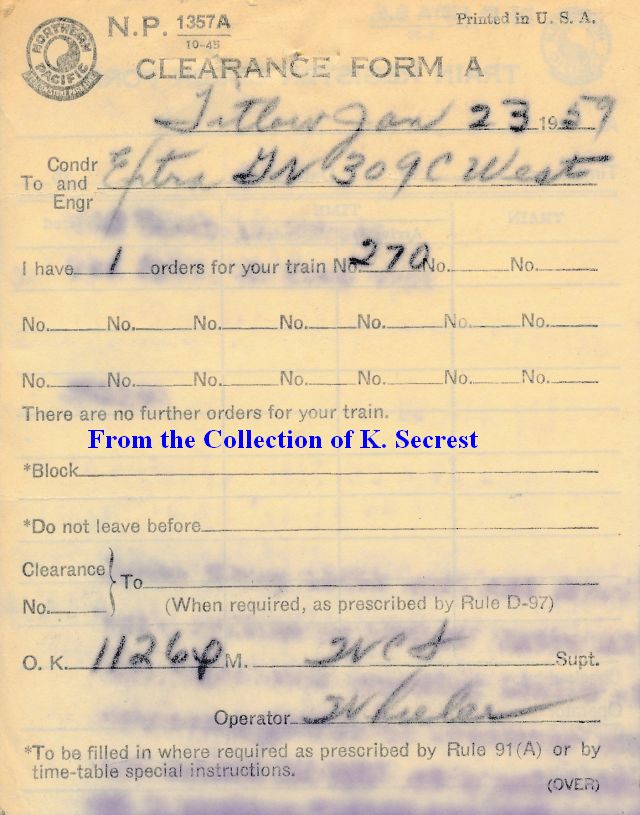 NORTHERN PACIFIC
YELLOWSTONE PARK LINE
N.P. 1357A
10-45
Printed in U. S. A.
CLEARANCE FORM A
Titlow Jan 23 1959
Condr
To and
Engr
Extra GN 309C West
I have 1 orders for your train No. 270 No. No.
No. No. No. No. No. No. No.
No. No. No. No. No. No. No.
There are no further orders for your train.
From the Collection of K. Secrest
*Block
*Do not leave before
Clearance
No. } To
(When required, as prescribed by Rule D-97)
O. K. 1126 p M. Supt.
Operator Wheeler
*To be filled in where required as prescribed by Rule 91(A) or by
time-table special instructions.
(OVER)